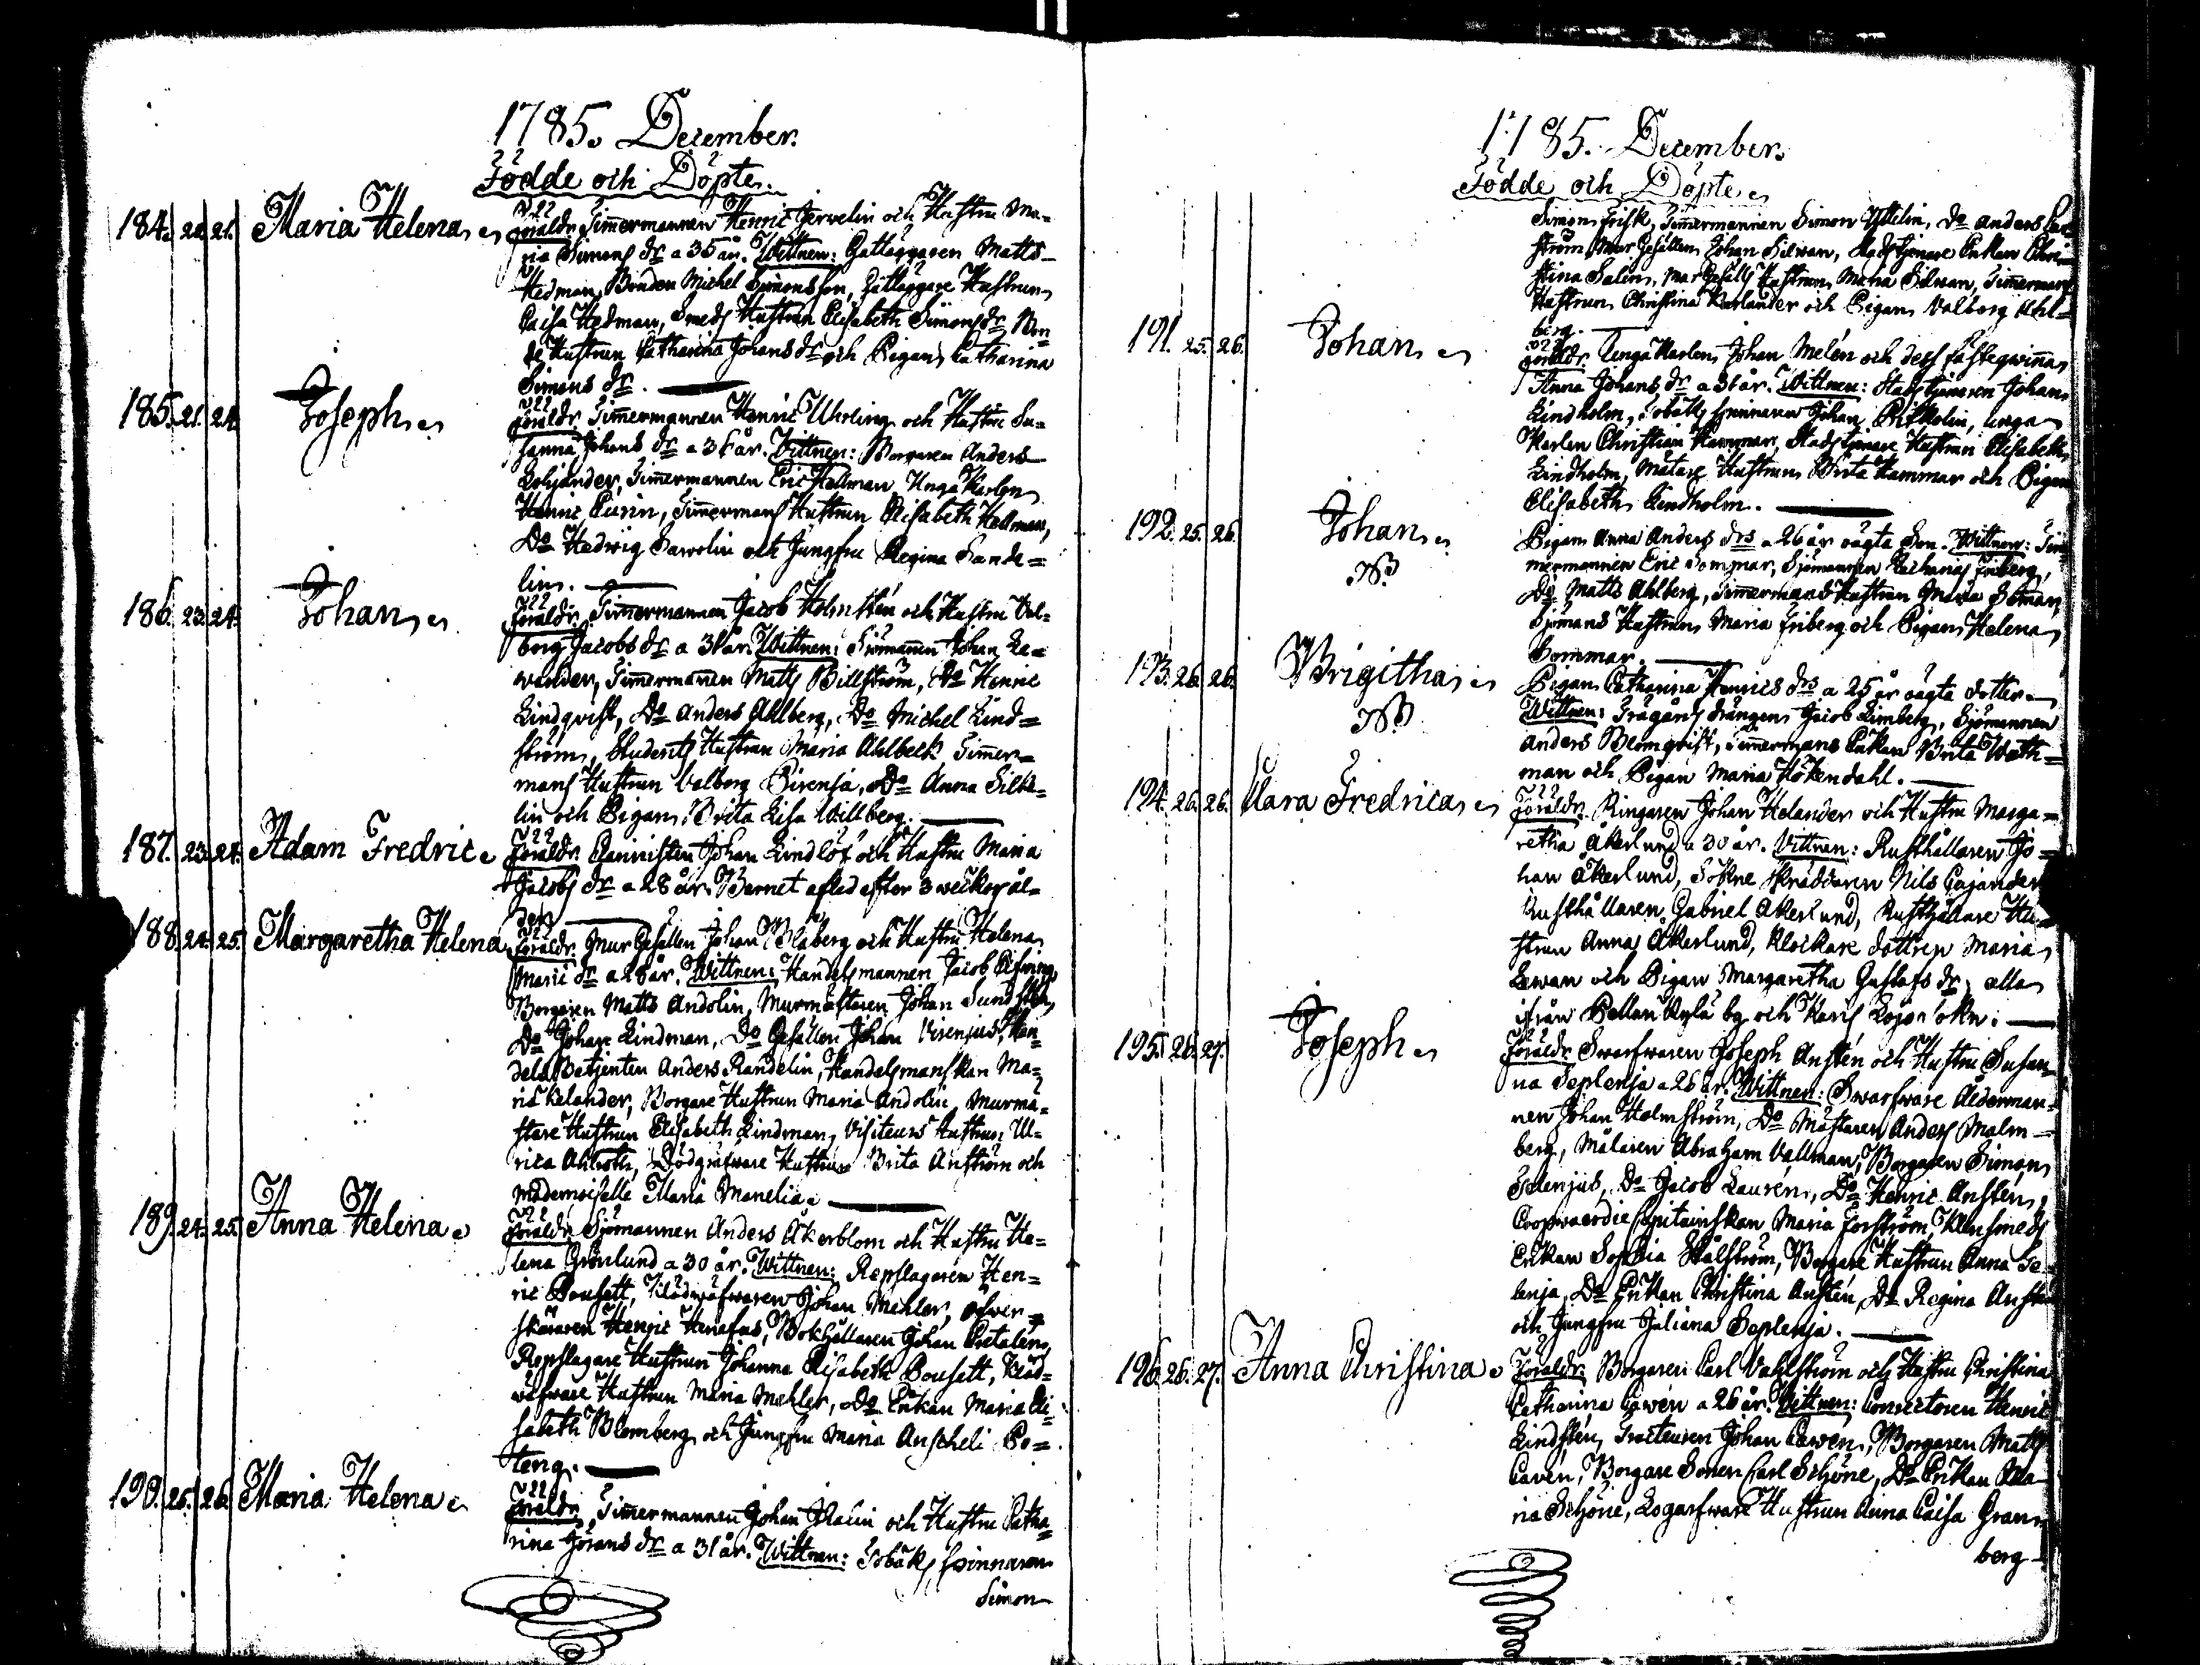 1785. December.
Födde och Döpte.
184. 20. 21. Maria Helena Föräldr. Timmermannen Henric Jervelin och Hustru Ma-
ria Simons dr a 35 år. Wittnen: Gatläggaren Matts
Hedman, Bonden Michel Simonsson, Gatläggare Hustrun
Caisa Hedman, Smeds Hustrun Elisabeth Simons dr Bon-
de Hustrun Catharina Johans dr och Pigan Catharina
Simons dr.
185. 21. 24. Joseph Föräldr. Timmermannen Henric Werling och Hustru Su-
sanna Johans dr a 36 år. Wittnen: Borgaren Anders
Timmermannen Eric Hellman, Unga Karlen
Henric Timmermans Hustrun Elisabeth Hellman,
Do Hedwig Sawolin och Jungfru Regina Sande-
lin.
186. 23. 24. Johan Föräldr. Timmermannen Jacob Holmstén och Hustru Val-
borg Jacobs dr a 31 år. Wittnen: Sjömannen Johan La-
vander, Timmermannen Matts Billström, Do Henric
Lindqvist, Do Anders Ahlberg, Do Michel Lind-
ström, Students Hustrun Maria Ahlbeck, Timmer-
mans Hustrun Valborg Do Anna Silke-
lin och Pigan Brita Lisa Willberg.
187. 23. 24. Adam Fredric Föräldr. Johan Lindlöf och Hustru Maria
Jacobs dr a 28 år. Barnet afled efter 3 weckors ål-
der
188. 24. 25. Margaretha Helena Föräldr. Mur Gesällen Johan Blåberg och Hustru Helena
Mari dr a 28 år. Wittnen: Handelsmannen Jacob
Borgaren Matts Andolin, Murmästaren Johan Sundstén,
Do Johan Lindman, Do Gesällen Johan Han-
dels Betjenten Anders Randelin, Handelsmanskan Ma-
ria Kelander, Borgare Hustrun Maria Andolin, Murmä-
stare Hustrun Elisabeth Lindman, Visiteurs Hustrun Ul-
rica Ahlroth, Dödgräfware Hustrun Brita Anström och
Mademoiselle Maria Manelia.
189. 24. 25. Anna Helena Föräldr. Sjömannen Anders Åkerblom och Hustru He-
lena Grönlund a 30 år. Wittnen: Repslagaren Hen-
ric Bousett, Klädwäfwaren Johan Mehler, öfwer-
skäraren Henric Bokhållaren Johan
Repslagare Hustrun Johanna Elisabeth Bousett, Kläd-
wäfware Hustrun Maria Mehler, Do Enkan Maria Eli-
sabeth Blomberg och Jungfru Maria Po-
teng.
190. 25. 26. Maria Helena Föräldr. Timmermannen Johan och Hustru Catha-
rina Jörans dr a 31 år. Wittnen: Tobaks spinnaren
Simon
1785. December.
Födde och Döpte
Simon Frisk, Timmermannen Simon Do Anders
ström, Mur Gesällen Johan Silwan, Stads tjenare Enkan Chri-
stina Salin, Mur Gesälls Hustrun Maria Silwan, Timmermans
Hustrun Christina Karlander och Pigan Valborg Ahl-
berg.
191. 25. 26. Johan Föräldr. Unga Karlen Johan Melén och dess fästeqwinna
Anna Johans dr a 31 år. Wittnen: Stads tjenaren Johan
Lindholm, Tobaks spinnaren Johan unga
Karlen Christian Hammar, Stads tjenare Hustrun Elisabeth
Lindholm, Mätare Hustrun Brita Hammar och Pigan
Elisabeth Lindholm.
192. 25. 26. Johan Pigan Anna Anders drs a 26 år oägta Son. Wittnen: Tim-
NB. mermannen Eric Sommar, Sjömannen Zacharias Friberg,
Do Matts Ahlberg, Timmermans Hustrun Maria
Sjömans Hustrun Maria Friberg och Pigan Helena
Sommar.
193. 26. 26. Brigitha Pigan Catharina Henrics drs a 25 år oägta dotter
NB Wittnen: Trägårds drängen Jacob Limberg, Sjömannen
Anders Blomqvist, Timmermans Enkan Brita Wath-
man och Pigan Maria Hökendahl.
194. 26. 26. Clara Fredrica Föräldr. Ringaren Johan Helander och Hustru Marga-
retha Åkerlund a 30 år. Vittnen: Rusthållaren Jo-
han Åkerlund, Sokne skräddaren Nils Cajander
Rusthållaren Gabriel Åkerlund, Rusthållare Hu-
strun Anna Åkerlund, Klockare dottren Maria
Lewan och Pigan Margaretha Gustafs dr alla
ifrån Pellan Kylä by och Karis Lojo Sokn:
195. 26. 27. Joseph Föräldr. Swarfwaren Joseph Anstén och Hustru Susan-
na Seplenja a 26 år. Wittnen: Swarfware Ålderman-
nen Johan Holmström, Do Mästaren Anders Malm-
berg, Målaren Abraham Vallman, Borgaren Simon
Selenjus, Do Jacob Laurén, Do Henric Anstén,
Coopwaerdie Capitainskan Maria Forsström, Klensmeds
Enkan Sophia Stålström, Borgare Hustrun Anna Se-
lenja, Do Enkan Christina Anstén, Do Regina Anstén
och Jungfru Juliana Seplenja.
196. 26. 27. Anna Christina Föräldr. Borgaren Carl Vahlström och Hustru Christina
Catharina Cawén a 26 år. Wittnen: Conrectoren Henric
Lindstén, Tracteuren Johan Cawén, Borgaren Matts
Cavén, Borgare Sonen Carl Schöne, Do Enkan Ma-
ria Schöne, Logarfware Hustrun Anna Caisa Gran-
berg